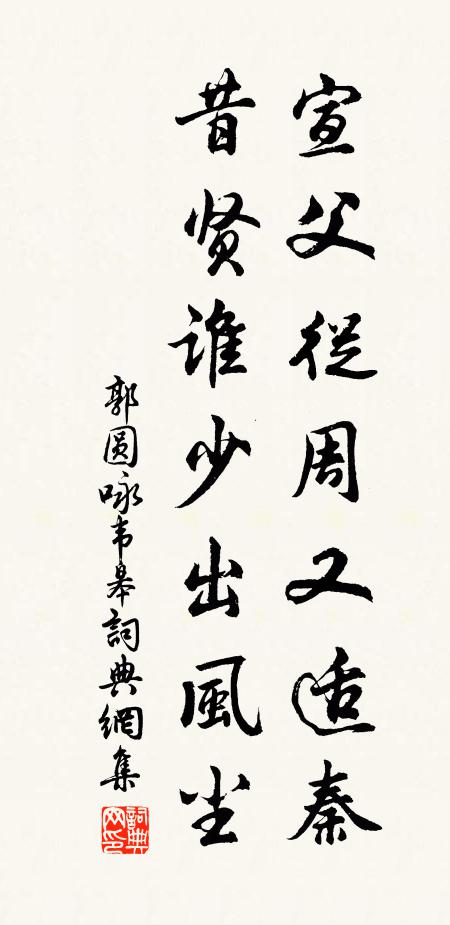 宣父從周又适秦
昔贤誰少出風尘
郭圆咏韦皋詞典網集
詞典网印